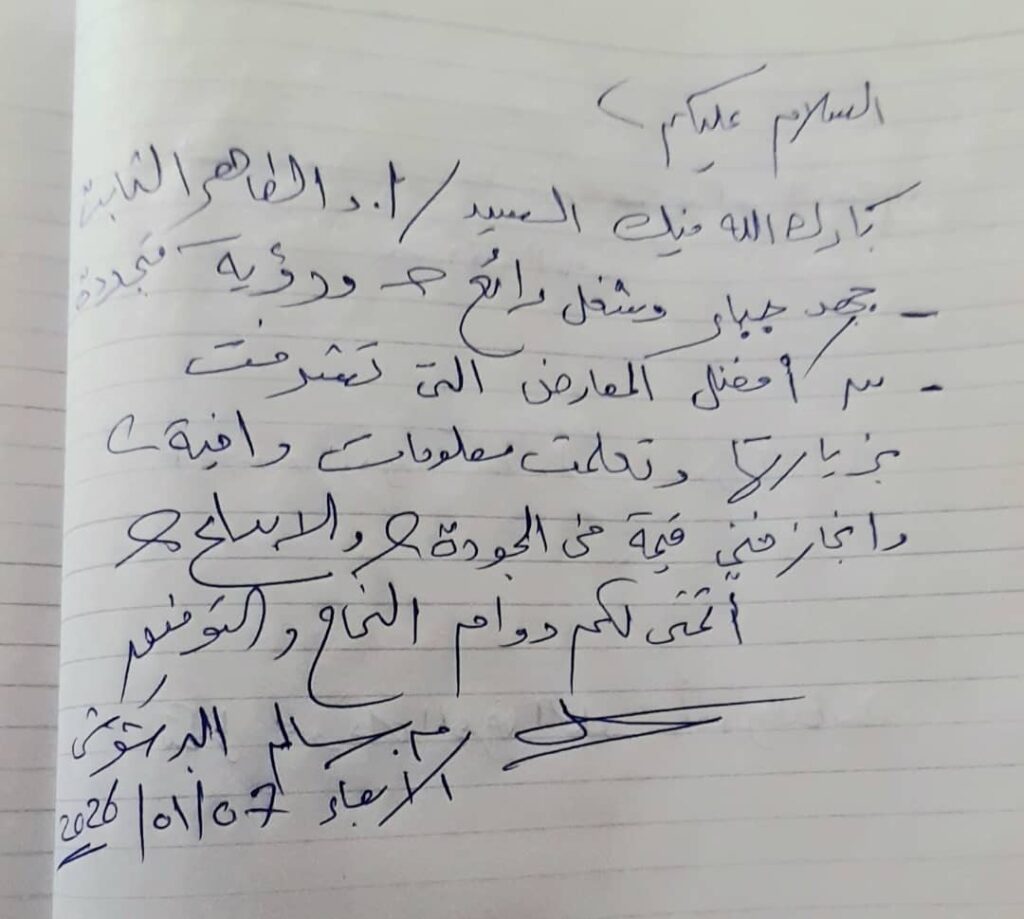 السلام عليكم
بارك الله فيك السيد / أ. د الطاهر الثابت
- جهد جبار وشغل رائع ورؤية متجددة
- من أفضل المعارض التي تشرفت
بزيارتها وتعلمت معلومات وافية
وانجاز فني قمة في الجودة والابداع
أتمنى لكم دوام النجاح والتوفيق
م. سالم البرشوشي
الأربعاء 07/01/2026